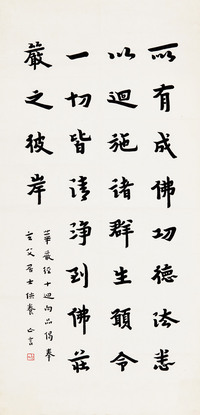 所有成佛功德法悉
以迴施諸群生願令
一切皆清淨到佛莊
嚴之彼岸
華嚴經十迴向品偈奉
父居士供養